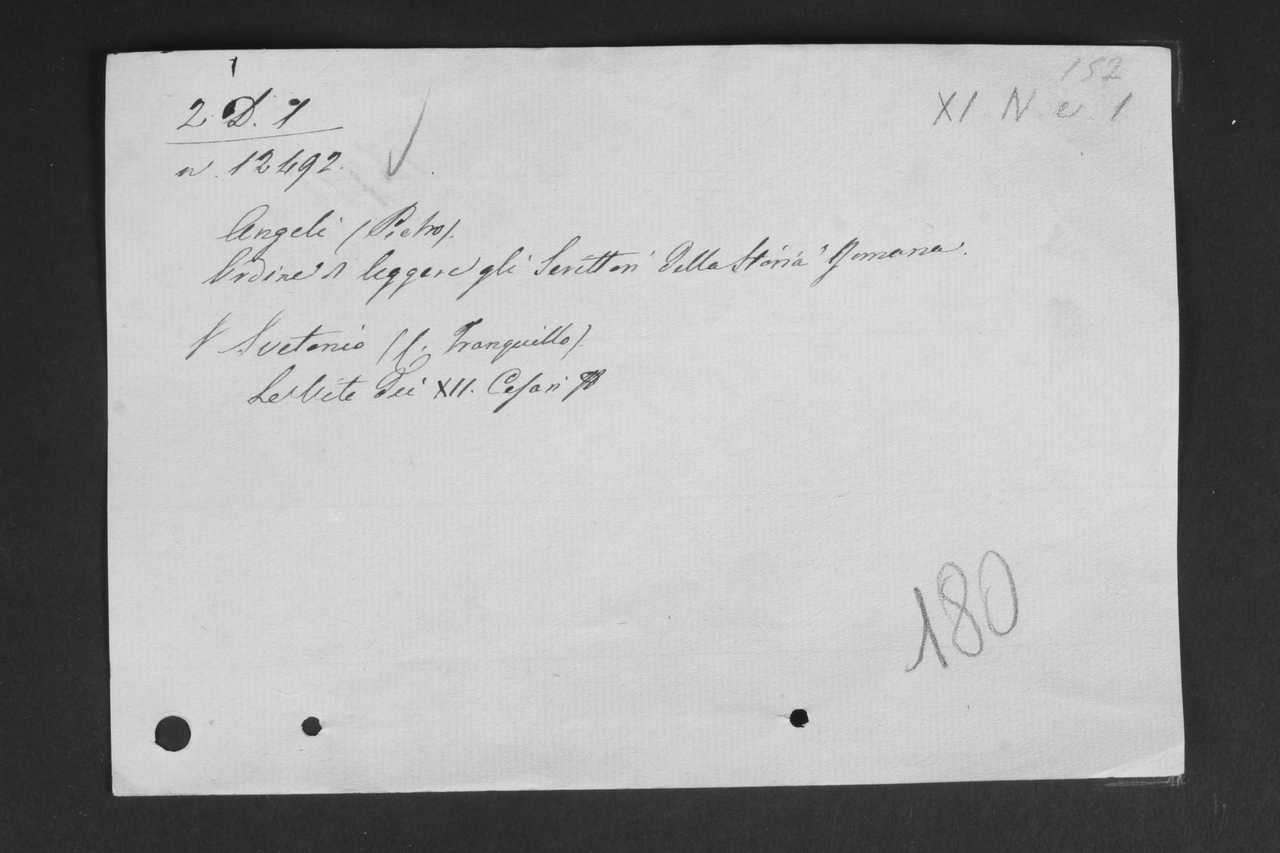 152
XI N e. 1
2. D. 1
n. 12492.
Angeli (Pietro).
Ordine di leggere gli Scrittori della Storia Romana.
V Svetonio (C. Tranquillo).
Le Vite dei XII. Cesari
180